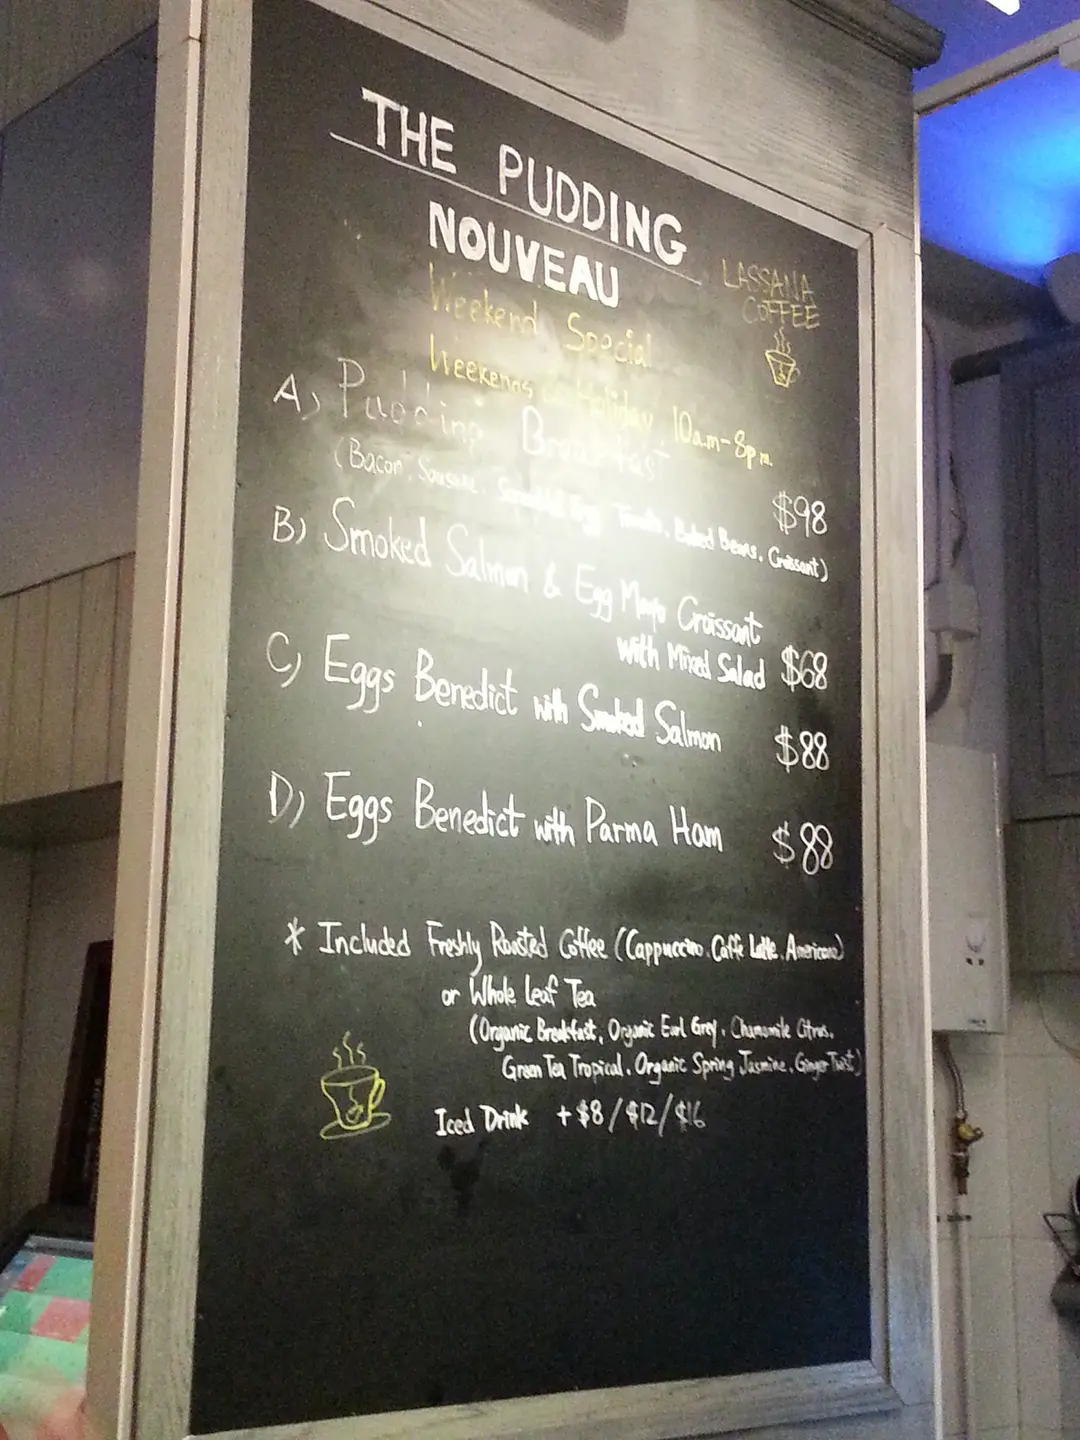 THE PUDDING
NOUVEAU
LASSANA
COFFEE
Weekend Special
Weekends Holiday 10am-8pm
A) Pudding Breakfast $98
(Bacon, Sausage, Scrambled Egg, Tomato, Baked Beans, Croissant)
B) Smoked Salmon & Egg Mayo Croissant
with Mixed Salad $68
C) Eggs Benedict with Smoked Salmon $88
D) Eggs Benedict with Parma Ham $88
* Included Freshly Roasted Coffee (Cappuccino, Caffe Latte, Americano)
or Whole Leaf Tea
(Organic Breakfast, Organic Earl Grey, Chamomile Citrus,
Green Tea Tropical, Organic Spring Jasmine, Ginger Twist)
Iced Drink +$8/$12/$16